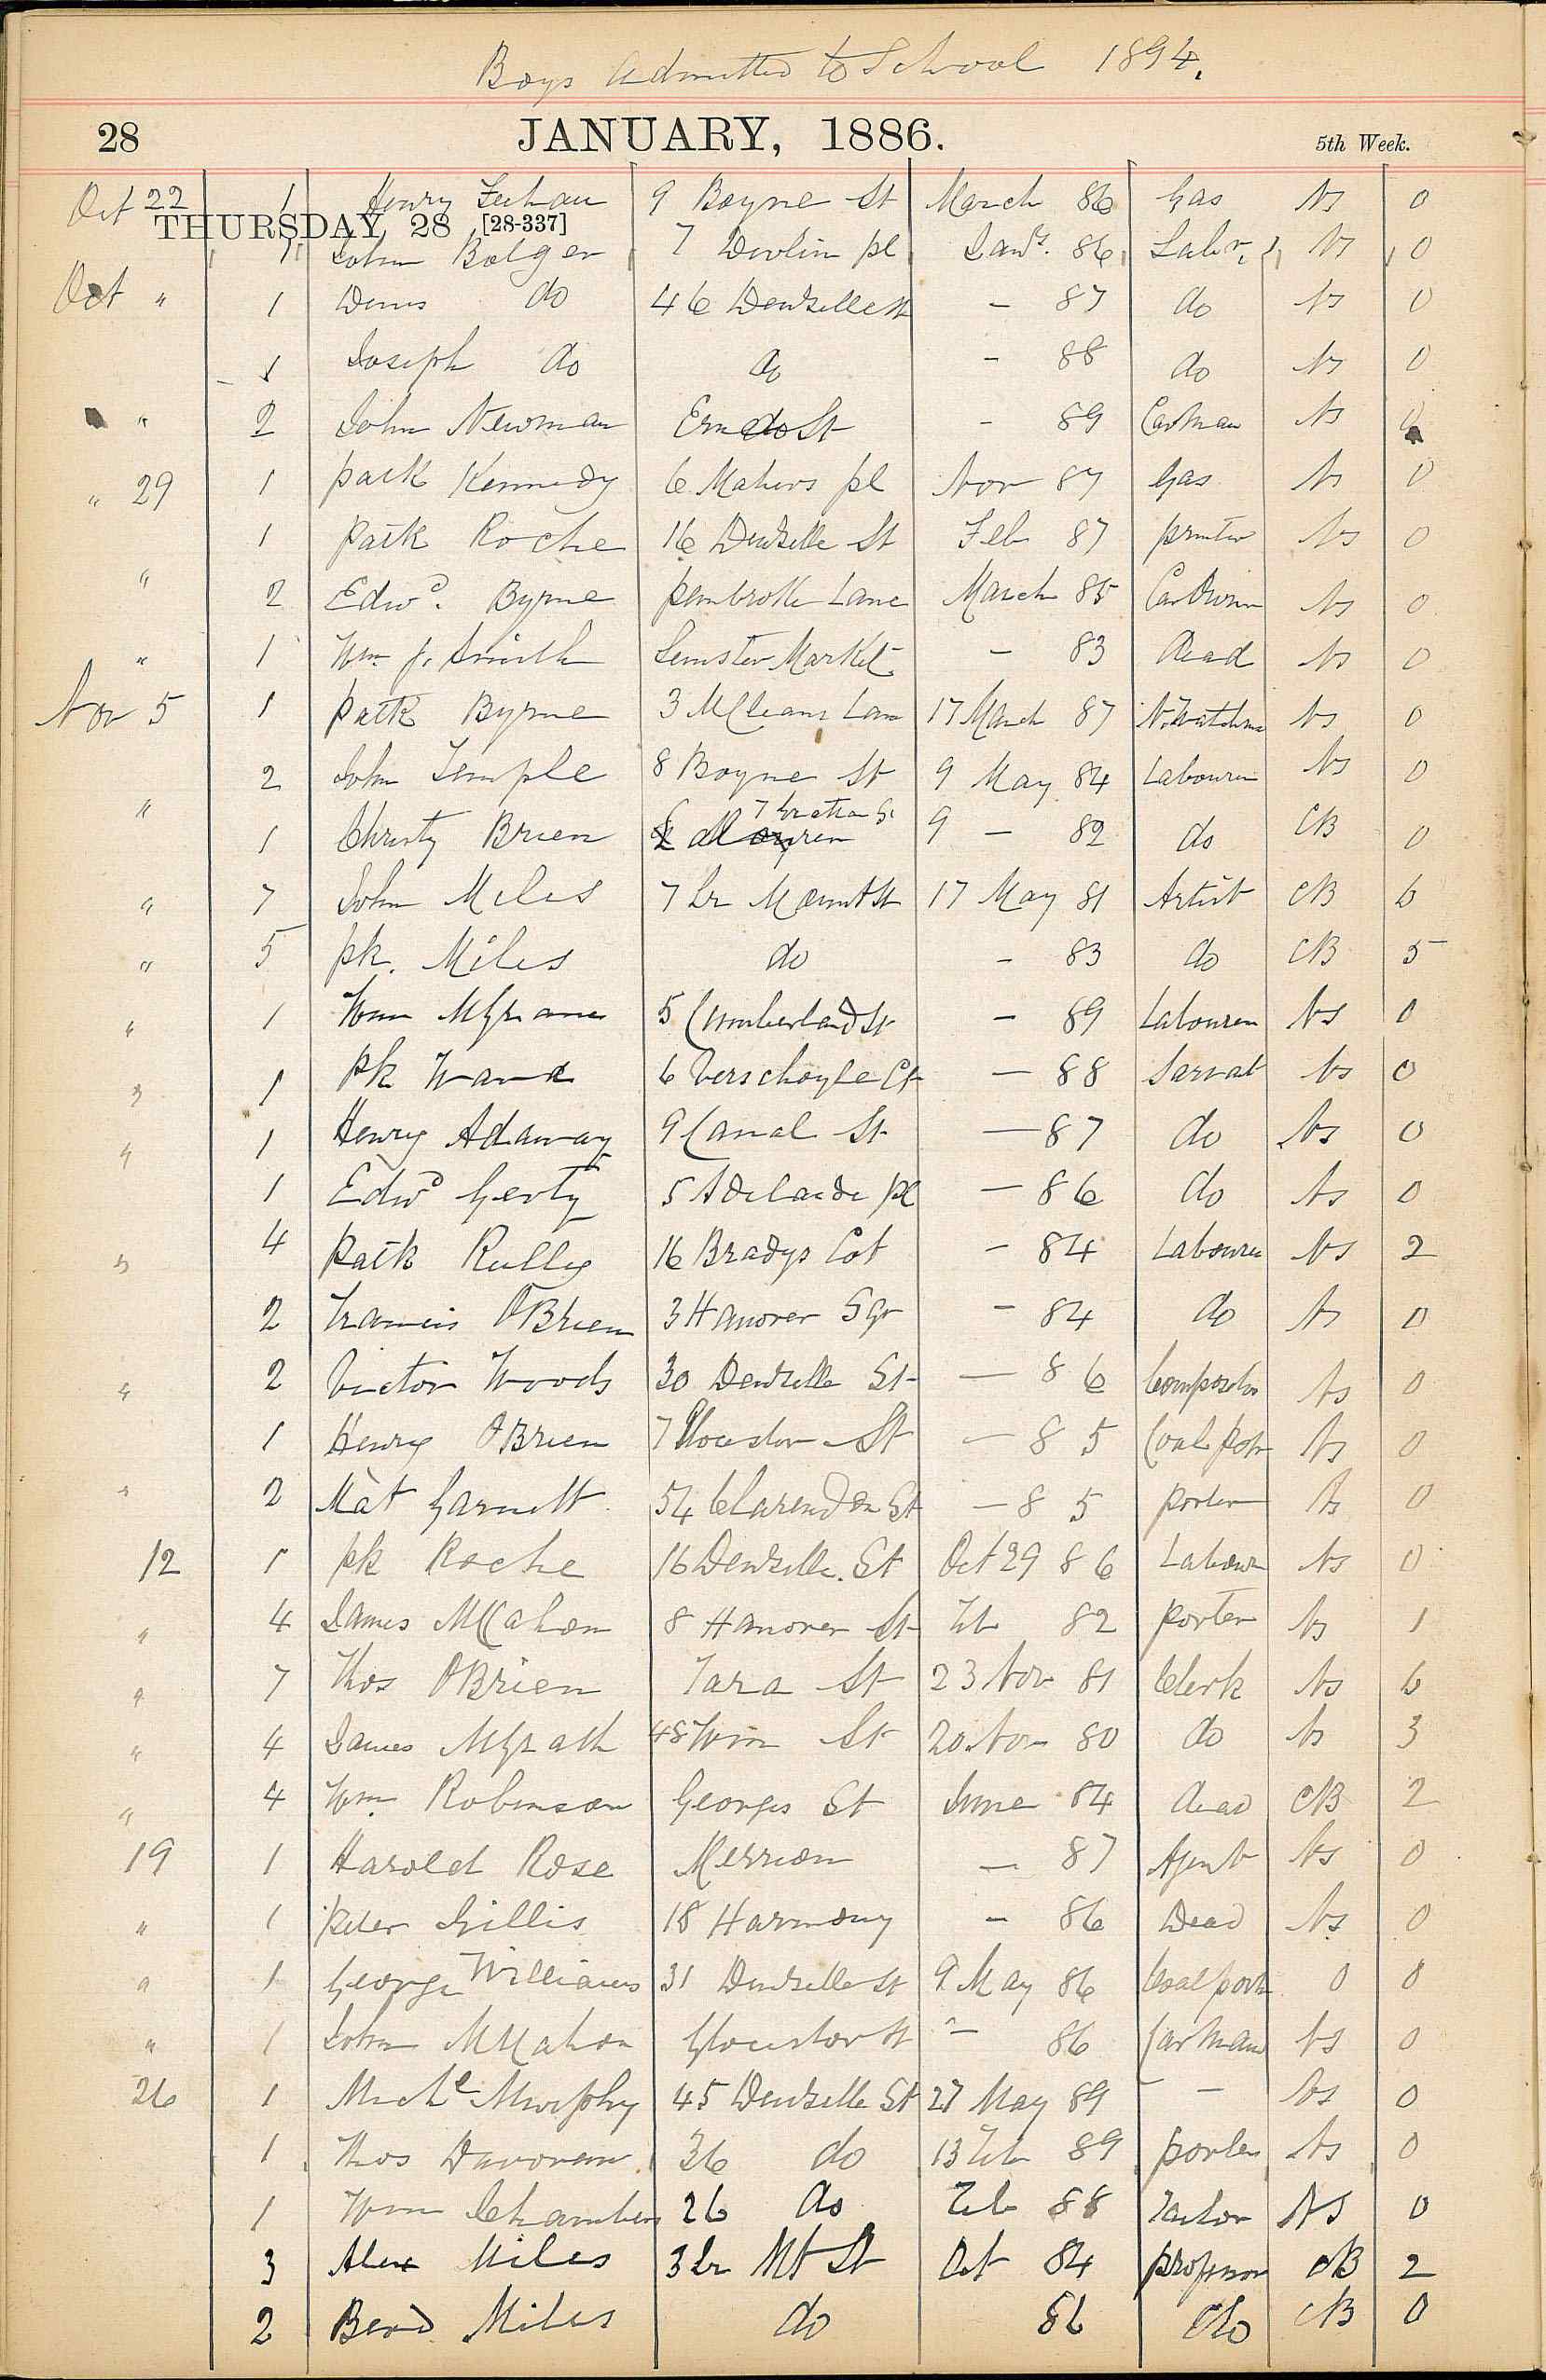 Boys admitted to School 1894.
28 JANUARY, 1886. 5th Week.
Oct 22 1 Henry Feehan 9 Boyne St March 86 Gas NS 0
THURSDAY 28 [28-337]
1 John Bolger 7 Devlin pl Jany. 86 Labr. NS 0
Oct " 1 Denis do 46 Denzille St - 87 do NS 0
1 Joseph do do - 88 do NS 0
" 2 John Newman Erne St - 89 Carman NS 0
" 29 1 Patk Kennedy 6 Mahers pl Nov 87 Gas NS 0
1 Patk Roche 16 Denzille St Feb 87 printer NS 0
" 2 Edwd. Byrne Pembroke Lane March 85 Car Driver NS 0
" 1 Wm J. Smith Leinster Market - 83 dead NS 0
Nov 5 1 Patk Byrne 3 McCleans Lane 17 March 87 N. Watchman NS 0
2 John Temple 8 Boyne St 9 May 84 Labourer NS 0
" 1 Christy Brien 7 St 9 - 82 do CB 0
" 7 John Miles 7 Lr Mount St 17 May 81 Artist CB 6
" 5 Pk. Miles do - 83 do CB 5
" 1 Wm McGrane 5 Cumberland St - 89 Labourer NS 0
" 1 Pk Ward 6 Verschoyle Ct - 88 Servant NS 0
" 1 Henry Adaway 9 Canal St - 87 do NS 0
1 Edwd Gerty 5 Adelaide pl - 86 do NS 0
" 4 Patk Reilly 16 Bradys Cot - 84 Labourer NS 2
2 Francis O'Brien 3 Hanover Sqr - 84 do NS 0
" 2 Victor Woods 30 Denzille St - 86 Compositor NS 0
1 Henry O'Brien 7 Gloucester St - 85 Coal Porter NS 0
" 2 Mat Garnett 54 Clarendon St - 85 porter NS 0
12 1 Pk Roche 16 Denzille St Oct 29 86 Labourer NS 0
" 4 James McCahon 8 Hanover St Feb 82 porter NS 1
" 7 Thos O'Brien Tara St 23 Nov 81 Clerk NS 6
" 4 James McGrath 48 Wm St 20 Nov 80 do NS 3
" 4 Wm. Robinson Georges St June 84 dead CB 2
19 1 Harold Rose Merrion - 87 Agent NS 0
" 1 Peter Gillis 18 Harmony - 86 Dead NS 0
" 1 George Williams 31 Denzille St 9 May 86 Coal porter 0 0
" 1 John McMahon Gloucester St - 86 Carman NS 0
26 1 Michl Murphy 45 Denzille St 27 May 89 - - NS 0
1 Thos Davoren 36 do 13 Feb 89 porter NS 0
1 Wm Chambers 26 do Feb 88 Tailor NS 0
3 Alex Miles 3 Lr Mt St Oct 84 professor CB 2
2 Bernd Miles do 86 do CB 0